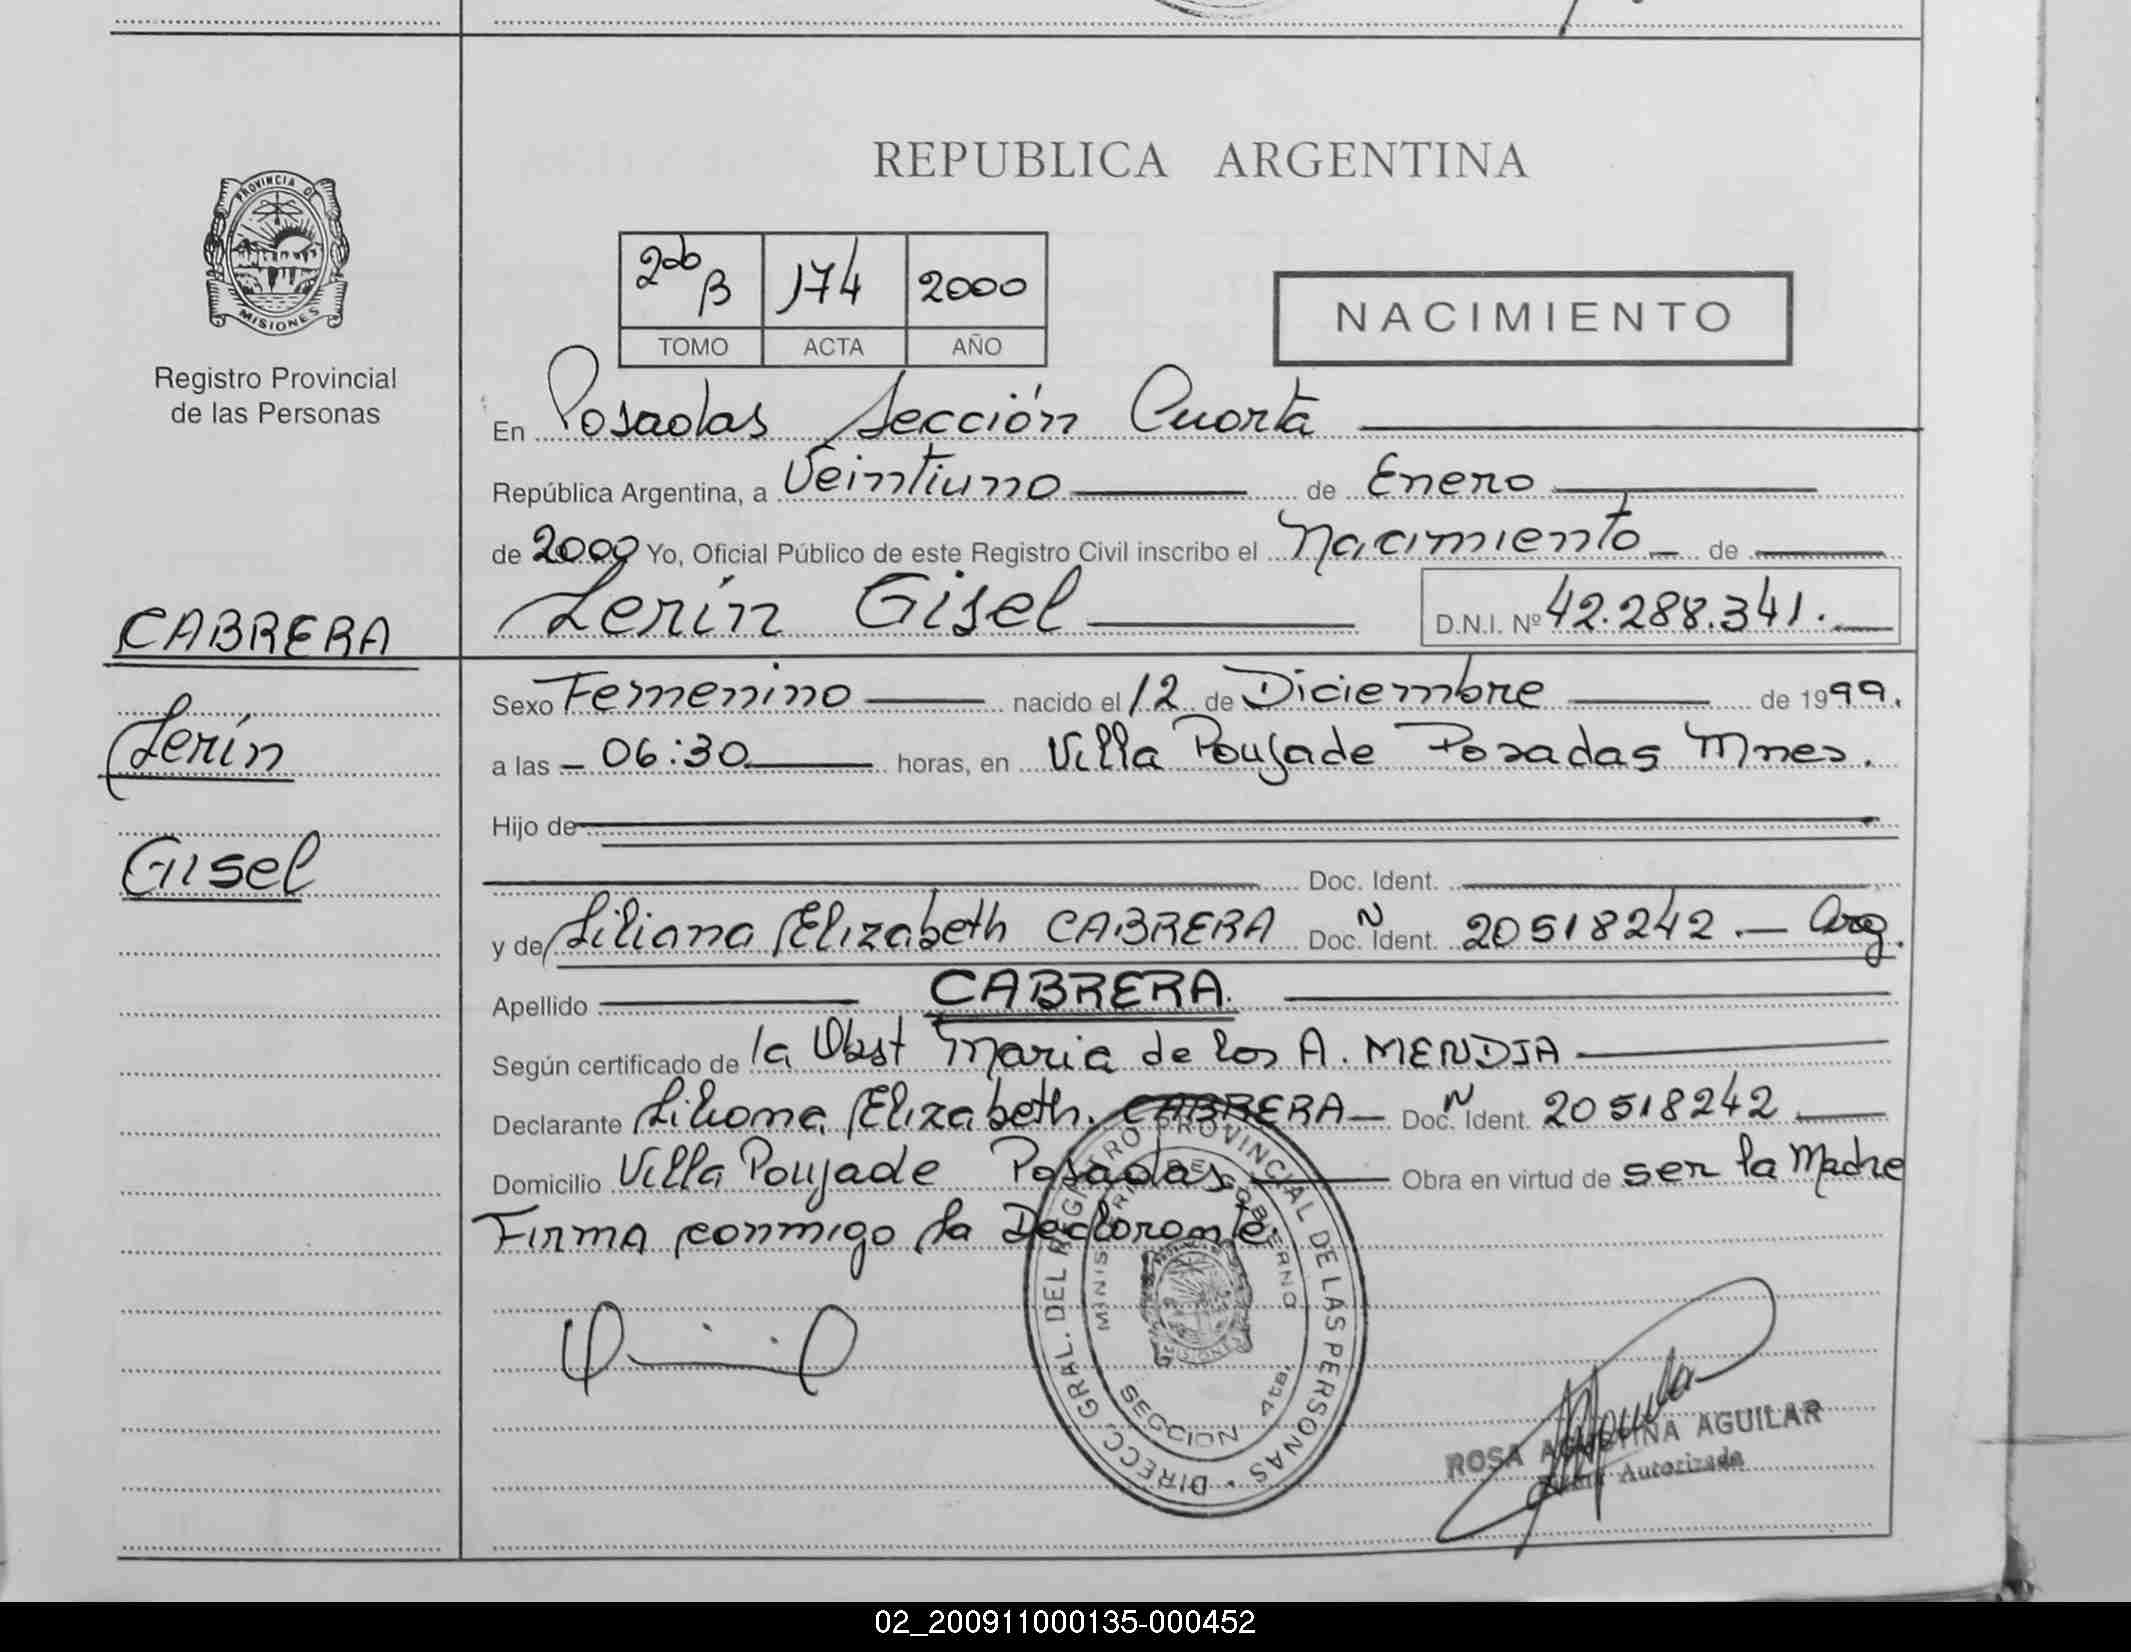 REPUBLICA ARGENTINA
PROVINCIA DE
MISIONES
Registro Provincial
de las Personas
2do B 174 2000
TOMO ACTA AÑO
NACIMIENTO
En Posadas Sección Cuarta
República Argentina, a Veintiuno de Enero
de 2000 Yo, Oficial Público de este Registro Civil inscribo el Nacimiento de
Lerín Gisel D.N.I. Nº 42.288.341.
CABRERA
Lerín
Gisel
Sexo Femenino nacido el 12 de Diciembre de 1999.
a las 06:30 horas, en Villa Poujade Posadas Mnes.
Hijo de
Doc. Ident.
y de Liliana Elizabeth CABRERA Doc. N Ident. 20518242.— Arg.
Apellido CABRERA.
Según certificado de la Obst Maria de los A. MENDIA
Declarante Liliana Elizabeth CABRERA— Doc. N Ident. 20518242
Domicilio Villa Poujade Posadas Obra en virtud de ser la Madre
Firma conmigo la Declarante
DIRECC. GRAL. DEL REGISTRO PROVINCIAL DE LAS PERSONAS
MINISTERIO DE GOBIERNO
MISIONES
SECCION 4ta.
ROSA AGUSTINA AGUILAR
Autorizada
02_200911000135-000452